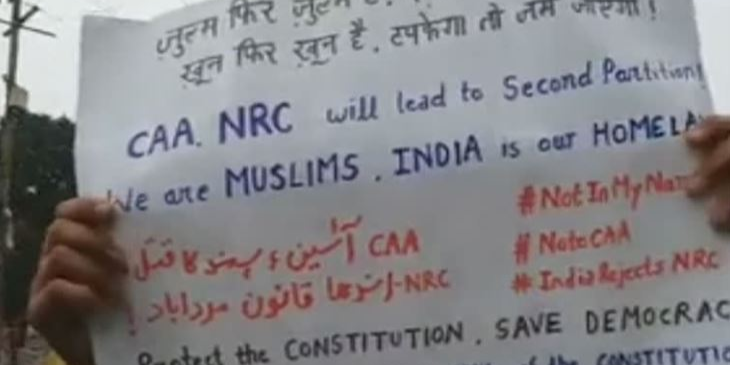 ज़ुल्म फिर ज़ुल्म
ख़ून फिर ख़ून है, टपकेगा तो जम जाएगा!
CAA. NRC will lead to Second Partition!
We are MUSLIMS. INDIA is our HOMELA
CAA آئین ء ہند کا قتل
NRC-اندھا قانون مردہ باد!
#NotInMyNa
#NotoCAA
#IndiaRejects NRC
Protect the CONSTITUTION, SAVE DEMOCRAC
of the CONSTITUTIO